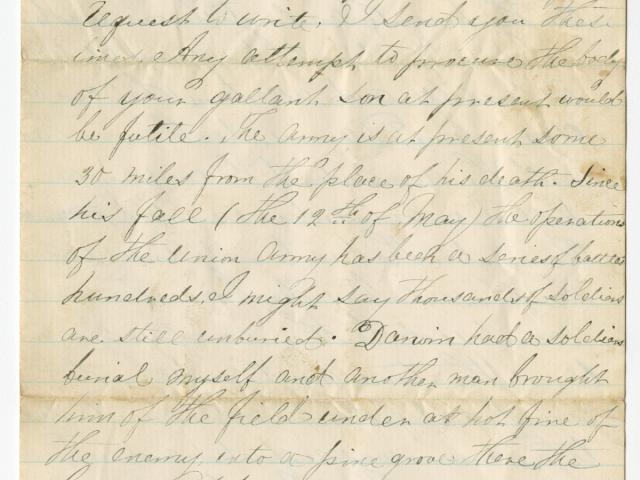 request to write. I send you these
lines. Any attempt to procure the body
of your gallant son at present would
be futile. The army is at present some
30 miles from the place of his death. Since
his fall (the 12th of May) the operations
of the Union Army has been a series of battles
hundreds, I might say thousands of soldiers
are still unburied. Darwin had a soldiers
burial myself and another man brought
him of the field under at hot fire of
the enemy, into a pine grove there the